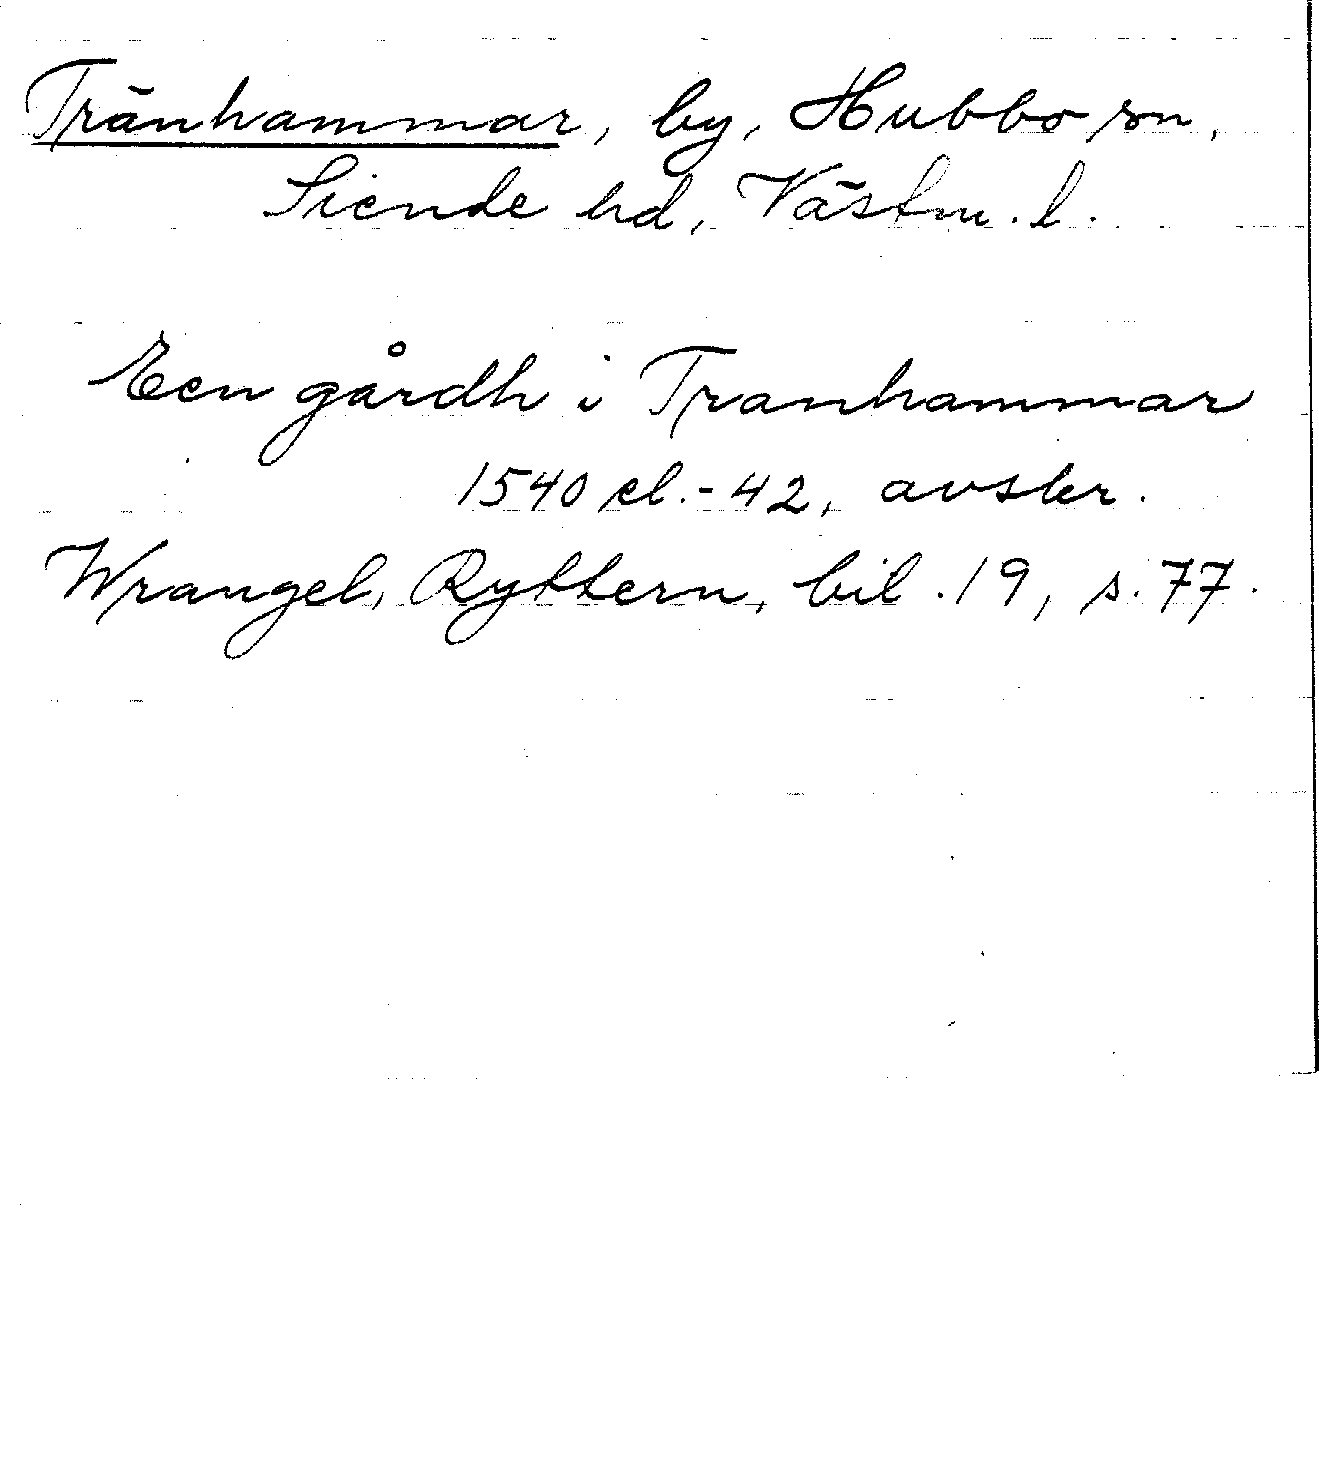 Tränhammar, by, Hubbo sn,
Siende hd, Västm. l.
Een gårdh i Tranhammar
1540 el.-42, avskr.
Wrangel, Ryttern, bil. 19, s. 77.